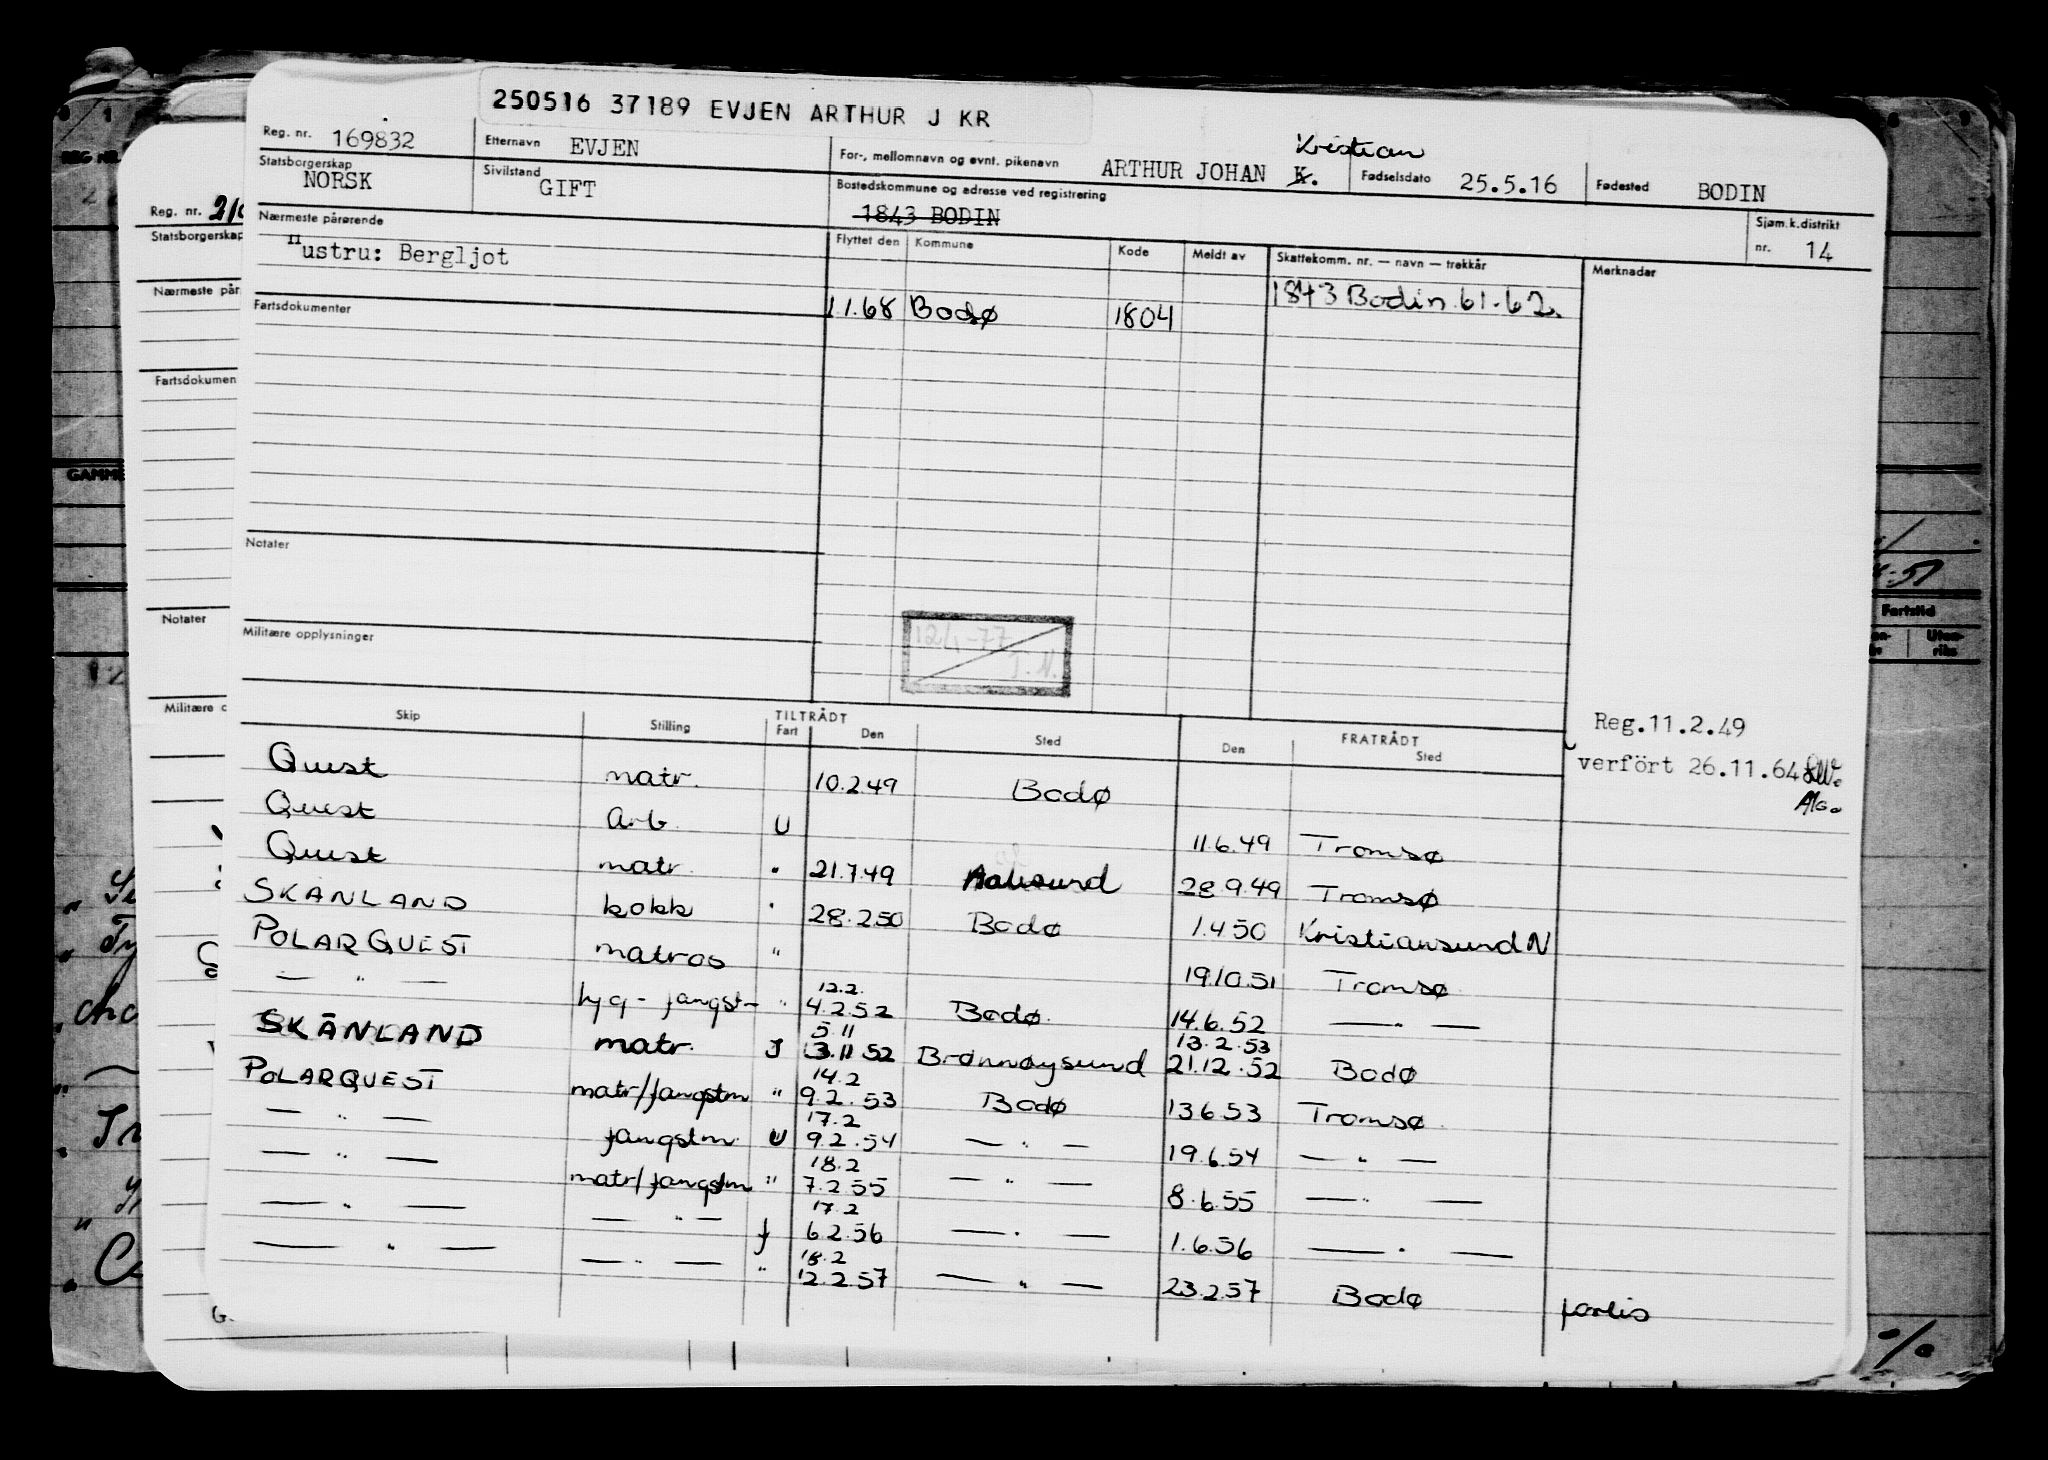 250516 37189 EVJEN ARTHUR J KR
Reg. nr. 169832
Etternavn EVJEN
For-, mellomnavn og evnt. pikenavn ARTHUR JOHAN K. Kristian
Fødselsdato 25.5.16
Fødested BODIN
Statsborgerskap NORSK
Sivilstand GIFT
Bostedskommune og adresse ved registrering
1843 BODIN
Sjøm.k.distrikt
nr. 14
Nærmeste pårørende
Hustru: Bergljot
Flyttet den Kommune Kode Meldt av Skattekomm. nr. — navn — trekkår Merknader
1.1.68 Bodø 1804 1843 Bodin 61-62.
Fartsdokumenter
Notater
12/1-77
Militære opplysninger
Reg.11.2.49
verfört 26.11.64
Skip Stilling TILTRÅDT Fart Den Sted FRATRÅDT Den Sted
Quest matr. 10.2.49 Bodø
Quest Arb. U 11.6.49 Tromsø
Quest matr. " 21.7.49 Aalesund 28.9.49 Tromsø
SKÅNLAND kokk " 28.2.50 Bodø 1.4.50 Kristiansund N
POLARQUEST matros " 19.10.51 Tromsø
— " — " 12.2. 4.2.52 Bodø. 14.6.52 — " —
SKÅNLAND matr. J 5.11 3.11.52 Brønnøysund 13.2.53 21.12.52 Bodø
POLARQUEST matr/fangstm " 14.2 9.2.53 Bodø 13.6.53 Tromsø
— " — fangstm. U 17.2 9.2.54 — " — 19.6.54 — " —
— " — matr/fangstm " 18.2 7.2.55 — " — 8.6.55 — " —
— " — — " — f 17.2 6.2.56 — " — 1.6.56 — " —
— " — — " — " 18.2 12.2.57 — " — 23.2.57 Bodø forlis
Reg. nr.
Statsborgerskap
Nærmeste pår
Fartsdokumen
Notater
Militære
GAMME
Fartstid
Uten-
riks